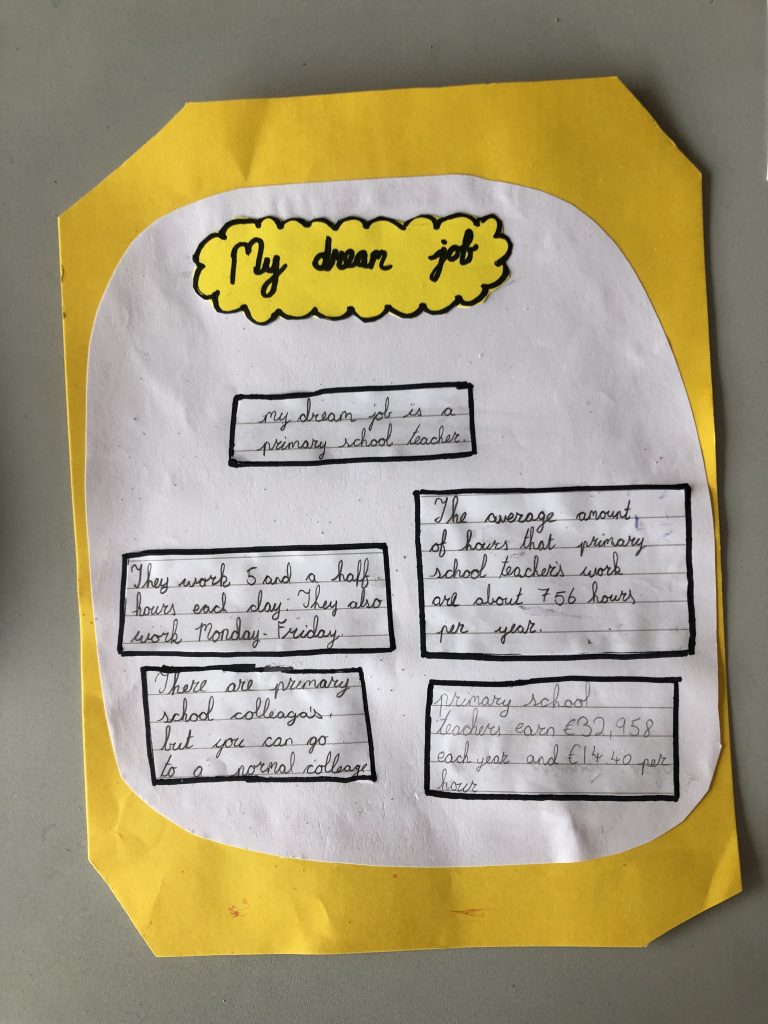 My dream job
my dream job is a
primary school teacher.
The average amount
of hours that primary
school teachers work
are about 756 hours
per year.
They work 5 and a half
hours each day. They also
work Monday-Friday
There are primary
school colleagas,
but you can go
to a normal colleage
primary school
teachers earn €32,958
each year and €14 40 per
hour